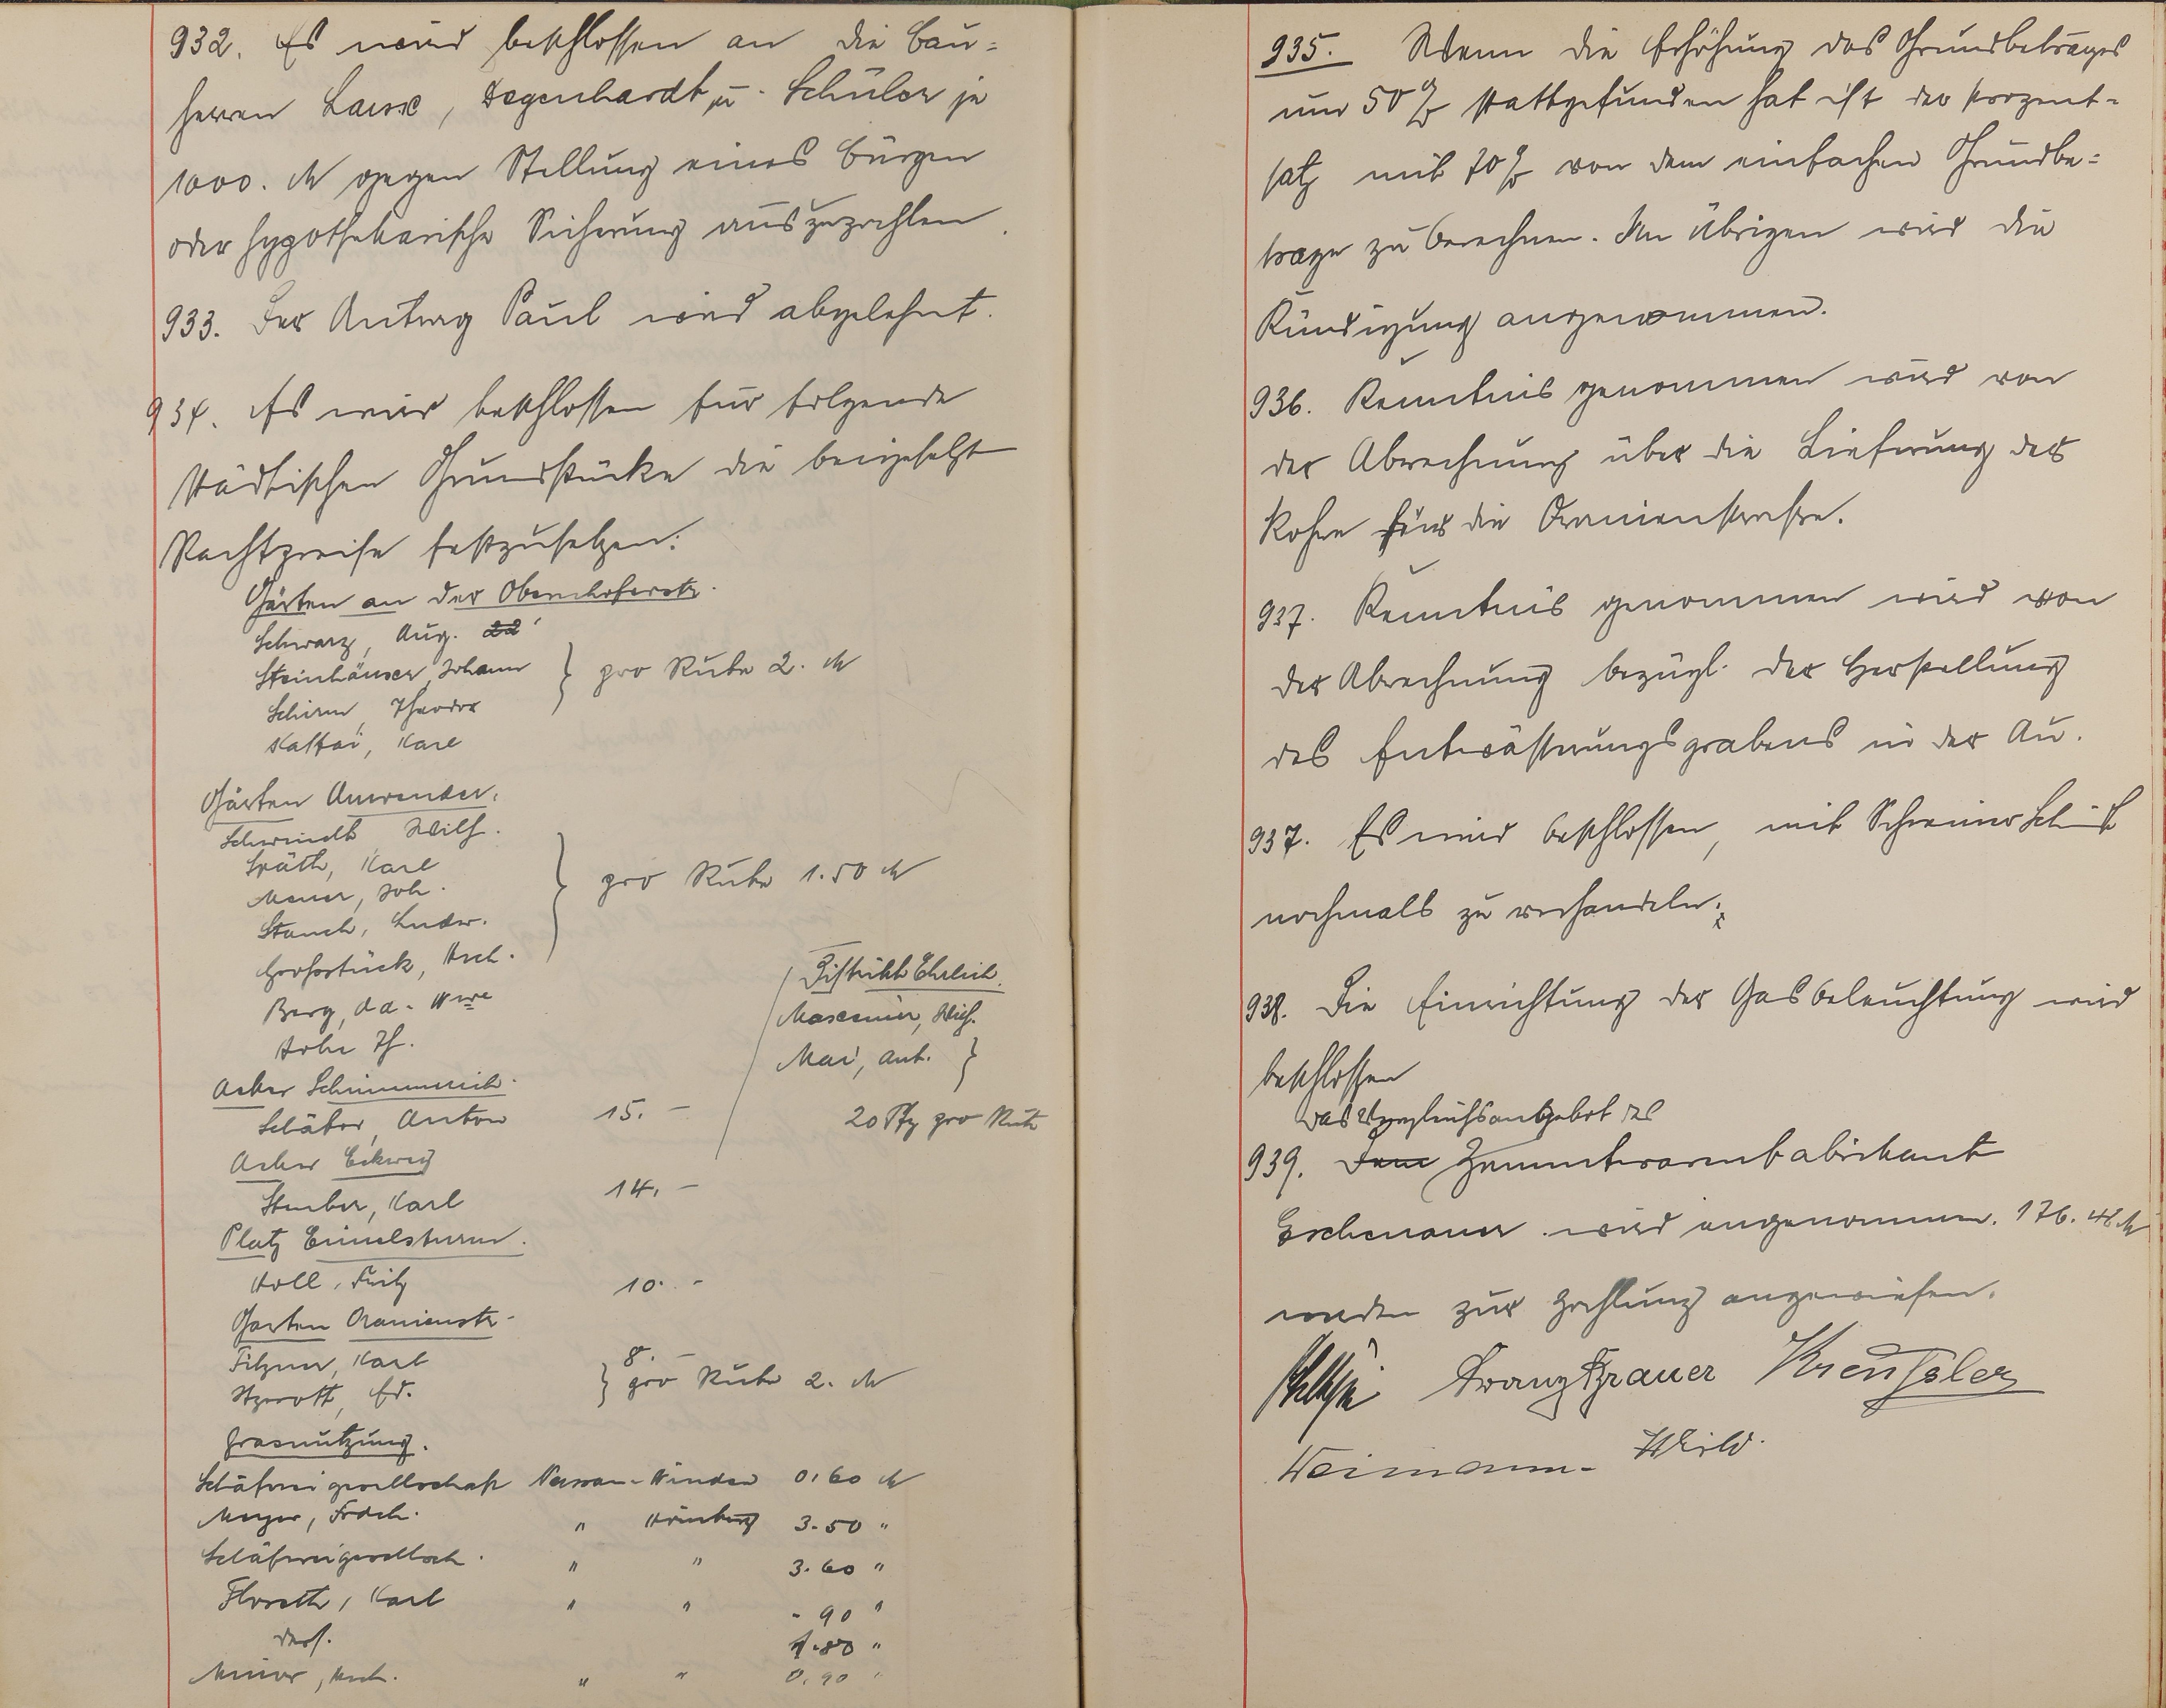 932. Es wird beschlossen an die Bau-
herren Lause, Degenhardt u. Schüler je
1000. M gegen Stellung eines Bürgen
oder hypothekarische Sicherung auszuzahlen.
933. Der Antrag Paul wird abgelehnt.
934. Es wird beschlossen für folgende
städtischen Grundstücke die beigesetzt
Pachtpreise festzusetzen:
Gärten an der Obernhoferstr.
Schwarz, Aug. 22
Steinhäuser, Johann } pro Rute 2. M
Schirm, Theodor
Kaffai, Karl
Gärten Anwender.
Schwindt Wilh.
Späth, Karl
Meuer, Joh. } pro Rute 1.50 M
Stauch, Ludw.
Großstück, Hch.
Berg, Ad. Wwe
Hohn Th.
Distrikt Ehrlich.
Maxeiner, Wilh.
Mai, Ant. }
20 Pfg pro Rute
Acker Schimmerich.
Schäfer, Anton 15. –
Acker Eckweg
Stuber, Karl 14. –
Platz Eimelsturm.
Holl, Fritz 10. –
Garten Oranienstr.
Filzner, Karl 8. –
Wzrott, Ed. } pro Rute 2. M
Grasnutzung.
Schäfereigesellschaft Nassau-Winden 0.60 M
Meyer, Frdch. " Hömberg 3.50 "
Schäfereigesellsch. " " 3.60 "
Floreth, Karl " " - 90 "
Ders. 1.80 "
Minor, Hch. " " 0.90 "
935. Wenn die Erhöhung des Grundbetrages
um 50 % stattgefunden hat ist der Prozent-
satz mit 70 % von dem einfachen Grundbe-
trage zu berechnen. Im Übrigen wird die
Kündigung angenommen.
936. Kenntnis genommen wird von
der Abrechnung über die Lieferung der
Rohre für die Oranienstrasse.
937. Kenntnis genommen wird von
der Abrechnung bezügl. der Herstellung
des Entwässerungsgrabens in der Au.
937. Es wird beschlossen, mit Schreiner
nochmals zu verhandeln.
938. Die Einrichtung der Gasbeleuchtung wird
beschlossen
das Vergleichsangebot des
939. Dem Zementwarenfabrikant
Eschenauer wird angenommen. 176.48 M
werden zur Zahlung angewiesen.
Franz Grauer Kreußler
Weimann. Wild.